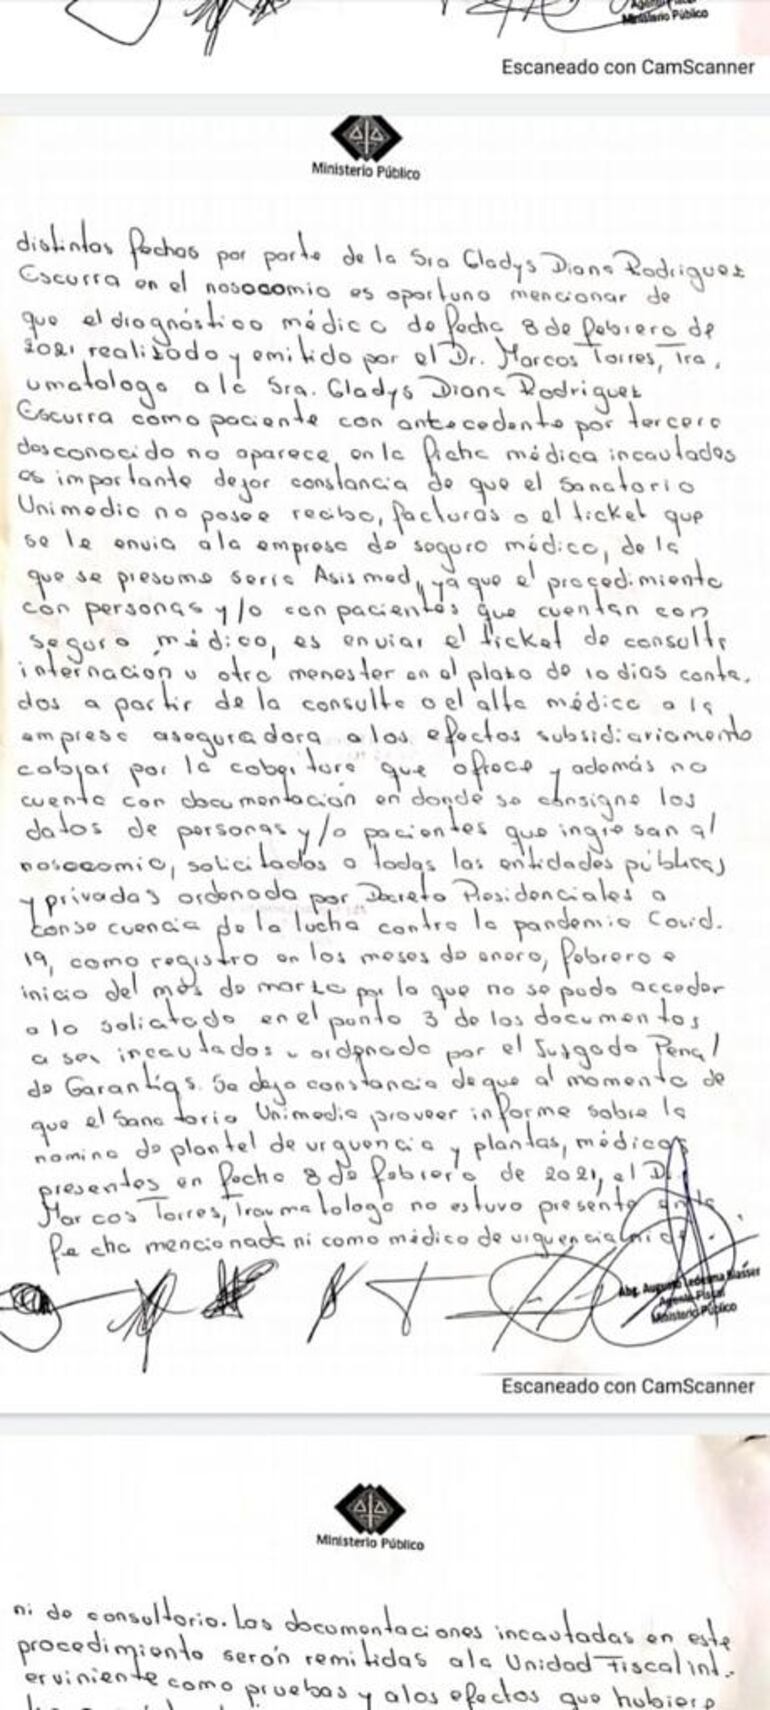 Agente Fiscal
Ministerio Público
Escaneado con CamScanner
Ministerio Público
distintas fechas por parte de la Sra Gladys Diana Rodriguez
Escurra en el nosocomio es oportuno mencionar de
que el diagnóstico médico de fecha 8 de febrero de
2021 realizado y emitido por el Dr. Marcos Torres, Tra.
umatologo a la Sra. Gladys Diana Rodriguez
Escurra como paciente con antecedente por tercero
desconocido no aparece en la ficha médica incautadas
es importante dejar constancia de que el Sanatorio
Unimedic no posee recibo, facturas o el ticket que
se le envia a la empresa de seguro médico, de la
que se presume seria Asismed, ya que el procedimiento
con personas y/o con pacientes que cuentan con
seguro médico, es enviar el ticket de consulta
internación u otro menester en el plazo de 10 dias conta.
dos a partir de la consulta o el alta médica a la
empresa aseguradora a los efectos subsidiariamente
cobrar por la cobertura que ofrece y además no
cuenta con documentación en donde se consigne los
datos de personas y/o pacientes que ingresan al
nosocomio, solicitados a todas las entidades públicas
y privadas ordenada por Decreto Presidenciales a
consecuencia de la lucha contra la pandemia Covid.
19, como registro en los meses de enero, febrero e
inicio del mes de marzo por lo que no se pudo acceder
a lo solicitado en el punto 3 de los documentos
a ser incautados u ordenado por el Juzgado Penal
de Garantías. Se deja constancia de que al momento de
que el Sanatorio Unimedic proveer informe sobre la
nomina de plantel de urguencia y plantas, médicos
presentes en fecha 8 de febrero de 2021, el D
Marcos Torres, Traumatologo no estuvo presente en la
fecha mencionada ni como médico de urguencia ni de
Abg. Augusto Ledesma Blasser
Agente Fiscal
Ministerio Público
Escaneado con CamScanner
Ministerio Público
ni de consultorio. Las documentaciones incautadas en este
procedimiento serán remitidas a la Unidad Fiscal int.
erviniente como pruebas y a los efectos que hubiere